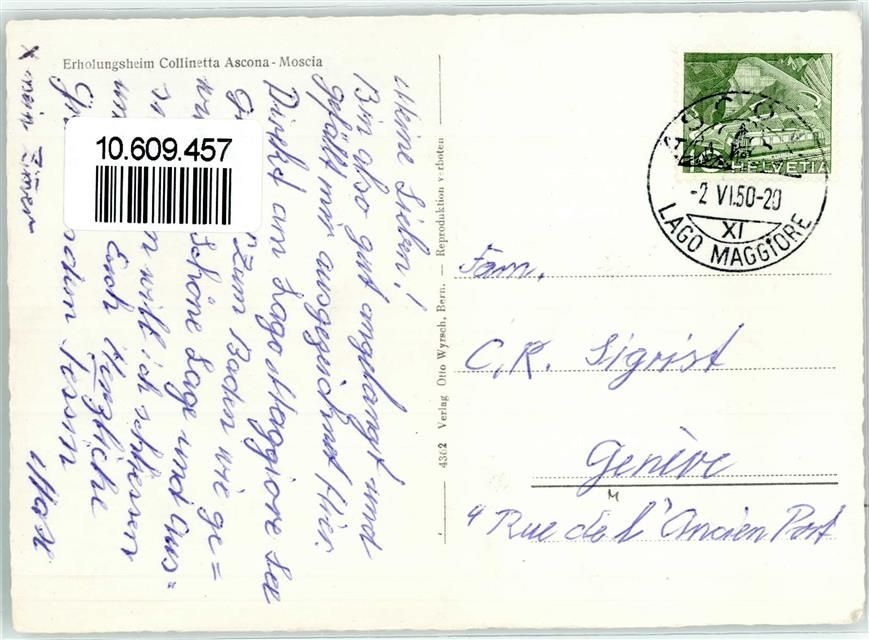 Erholungsheim Collinetta Ascona - Moscia
Meine Lieben!
Bin also gut angelangt und
gefällt mir ausgezeichnet hier.
Direkt am Lago Maggiore See
zum Baden wie ge=
Schöne Lage und Aus=
will ich schliessen
und Euch Herzliche
Tessin
Max
x mein Zimer
10.609.457
4362 Verlag Otto Wyrsch, Bern. — Reproduktion verboten
HELVETIA
-2 VI.50-20
XI
LAGO MAGGIORE
Fam.
C. R. Sigrist
Genève
4 Rue de l'Ancien Port